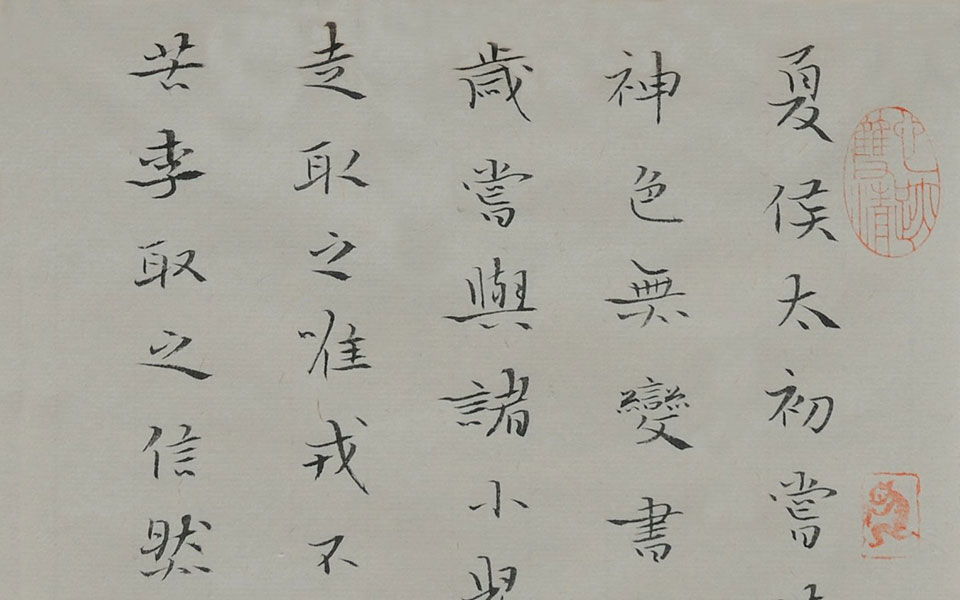 夏侯太初嘗
神色無變書
歲嘗與諸小
走取之唯戎不
苦李取之信然